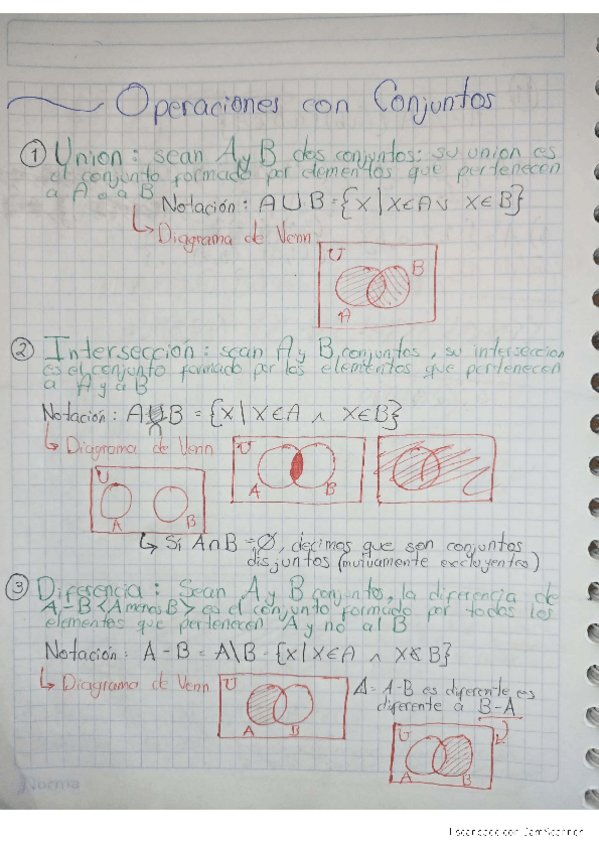 Operaciones con Conjuntos
① Union: sean A y B dos conjuntos: su union es
el conjunto formado por elementos que pertenecen
a A o a B
Notación: A∪B={x|x∈A∨ x∈B}
↳Diagrama de Venn
U
B
A
② Intersección: sean A y B, conjuntos, su interseccion
es el conjunto formado por los elementos que pertenecen
a A y a B
Notación: A∩B = {x|x∈A ∧ x∈B}
↳ Diagrama de Venn
U
A B
U
A B
↳ Si A∩B=∅, decimos que son conjuntos
disjuntos (mutuamente excluyentes)
③ Diferencia: Sean A y B conjunto, la diferencia de
A-B <A menos B> es el conjunto formado por todos los
elementos que pertenecen A y no al B
Notación: A-B = A\B = {x|x∈A ∧ x∉B}
↳ Diagrama de Venn
U
A B
A-B es diferente es
diferente a B-A
U
A B
Norma
Escaneado con CamScanner